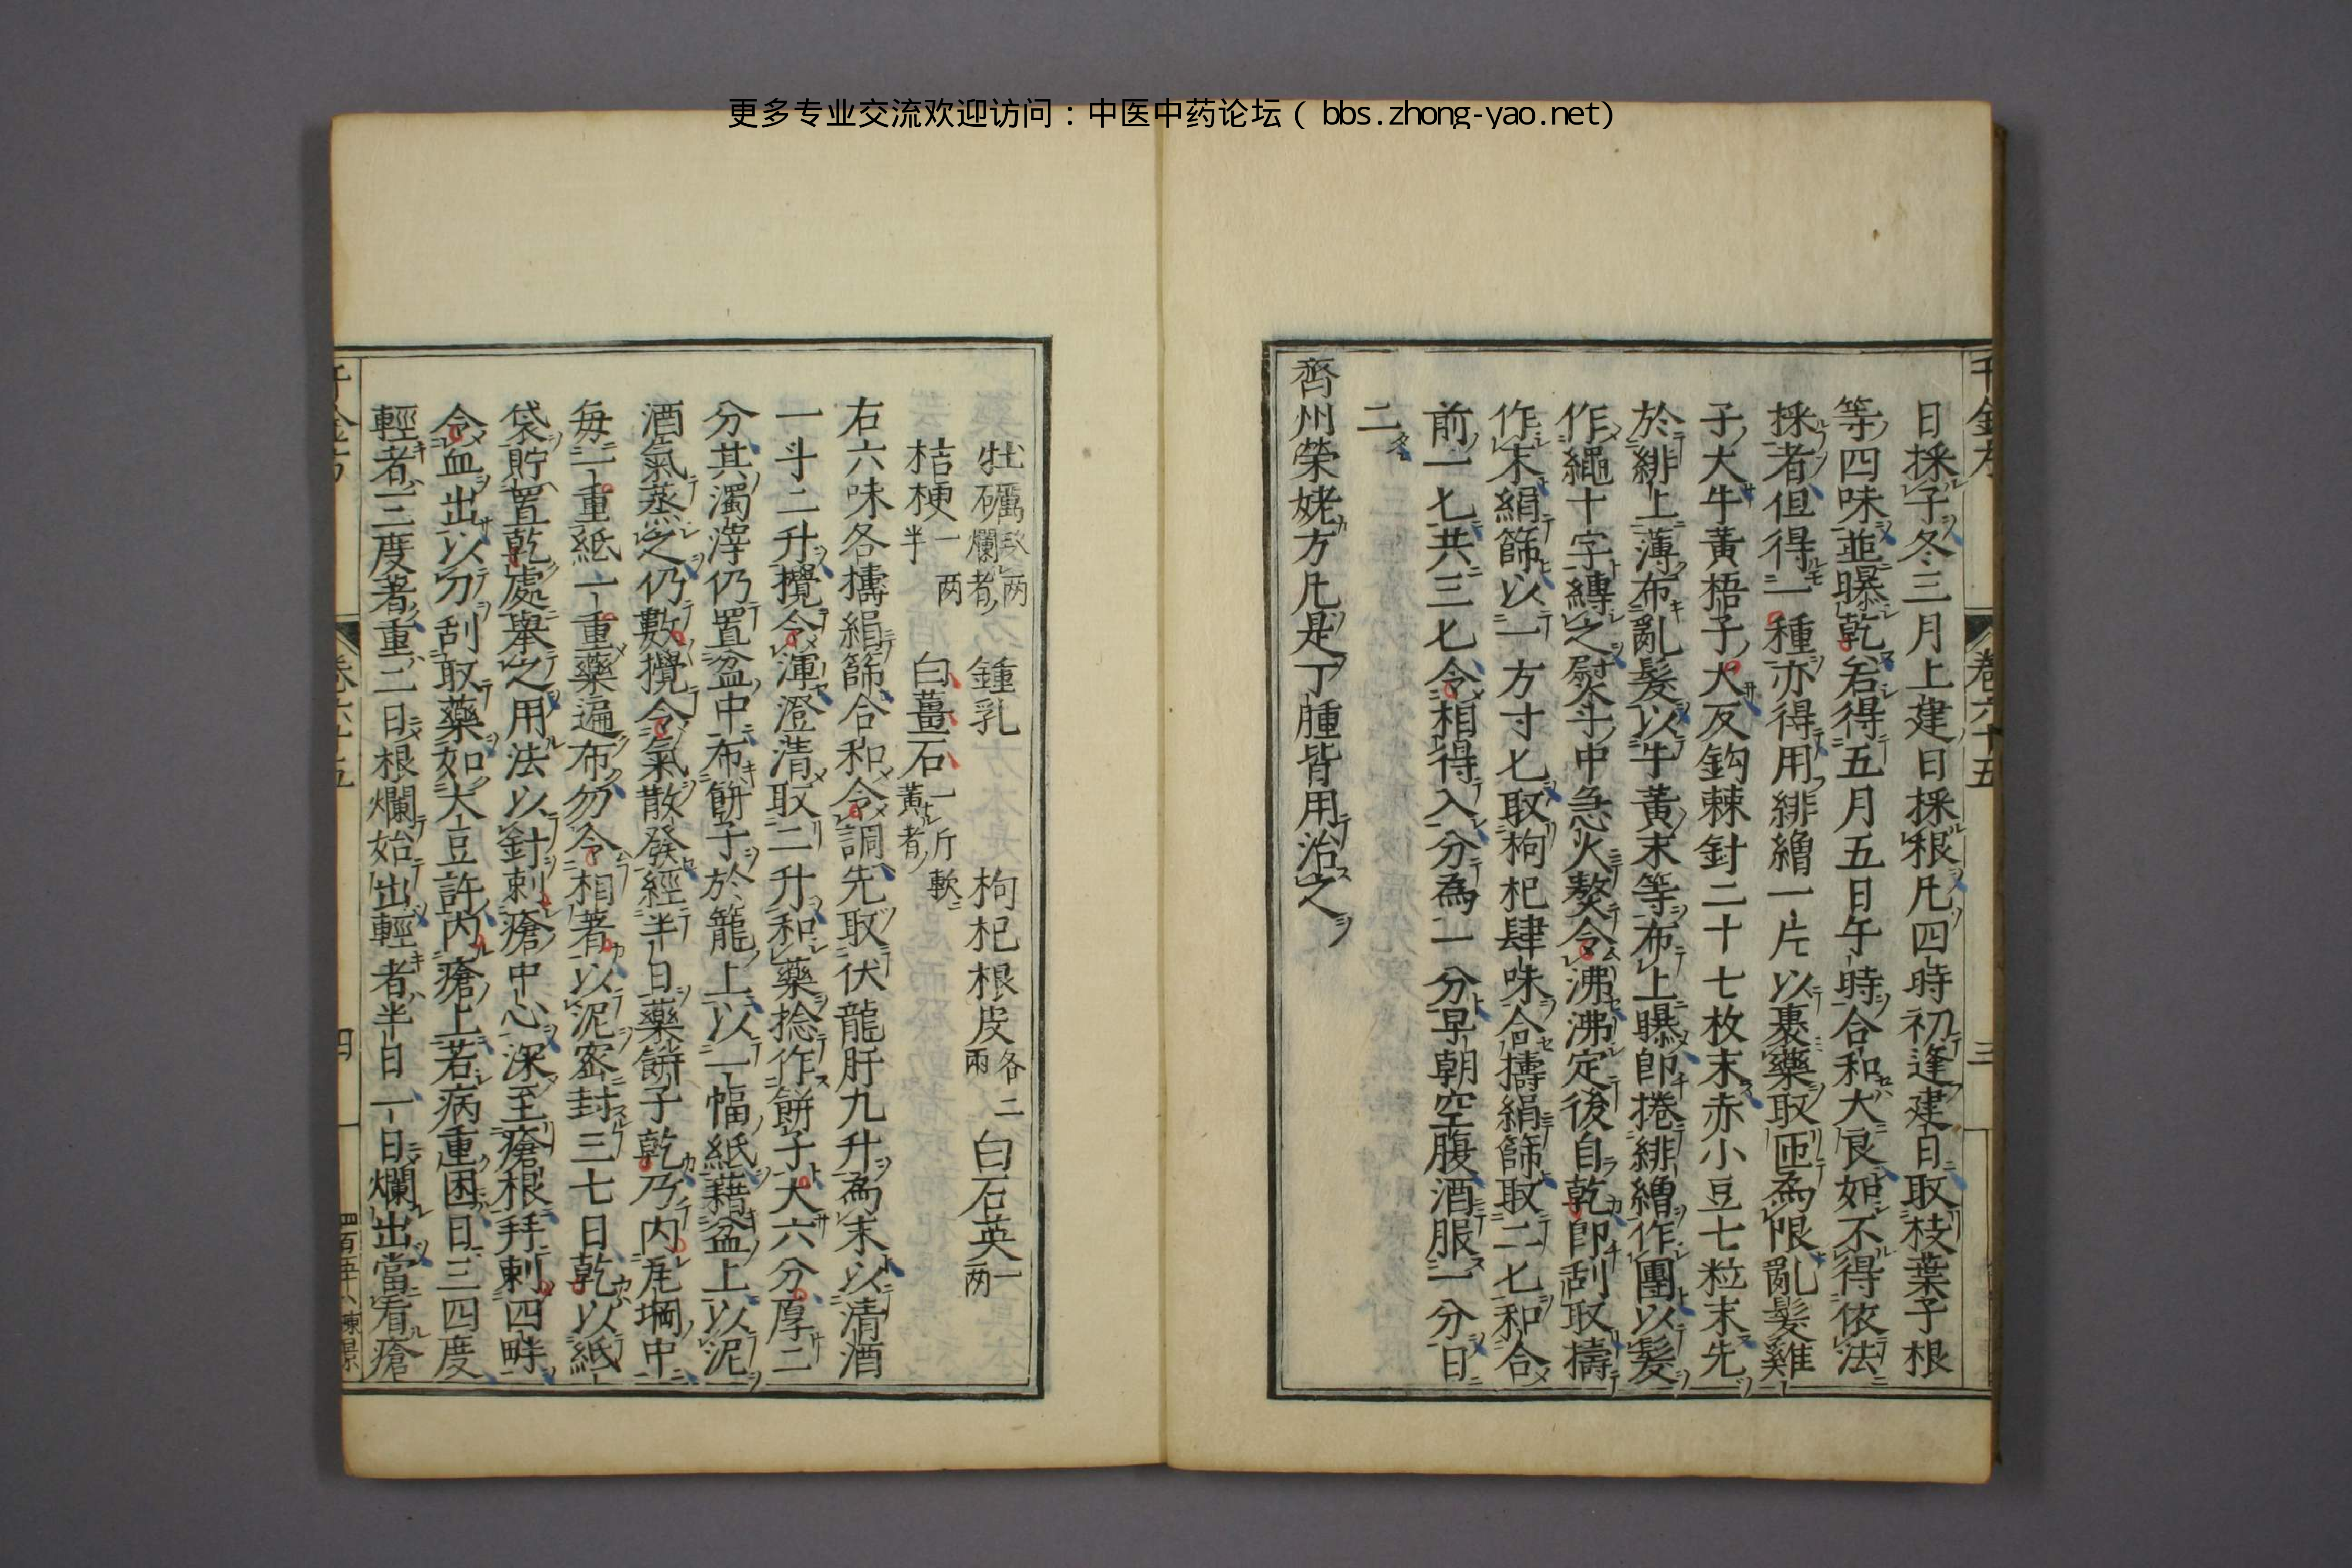 更多专业交流欢迎访问：中医中药论坛（ bbs.zhong-yao.net)
千金方
卷六十五
三
日採子冬三月上建日採根凡四時初逢建日取枝葉子根
等四味並曝乾若得五月五日午時合和大良如不得依法
採者但得一種亦得用緋繒一片以裹藥取匝為限亂髮雞
子大牛黃梧子大反鈎棘針二十七枚末赤小豆七粒末先
於緋上薄布亂髮以牛黃末等布上曝即捲緋繒作團以髮
作繩十字縛之熨斗中急火熬令沸沸定後自乾即刮取擣
作末絹篩以一方寸匕取枸杞肆味合擣絹篩取二匕和合
前一匕共三匕令相得入分為二分早朝空腹酒服一分日
二
齊州榮姥方凡是丁腫皆用治之
牡礪 两 爛者 鍾乳 枸杞根皮各二兩 白石英一两
桔梗一两半 白薑石一斤軟黃者
右六味各擣絹篩合和令調先取伏龍肝九升為末以清酒
一斗二升攪令渾澄清取二升和藥捻作餅子大六分厚二
分其濁滓仍置盆中布餅子於籠上以一幅紙藉盆上以泥
酒氣蒸之仍數攪令氣散發經半日藥餅子乾乃內瓦堈中
每一重紙一重藥遍布勿令相著以泥密封三七日乾以紙
袋貯置乾處舉之用法以針刺瘡中心深至瘡根并刺四畔
令血出以刀刮取藥如大豆許內瘡上若病重困日三四度
輕者三度著重二日根爛始出輕者半日一日爛出當看瘡
千金方
卷六十五
四